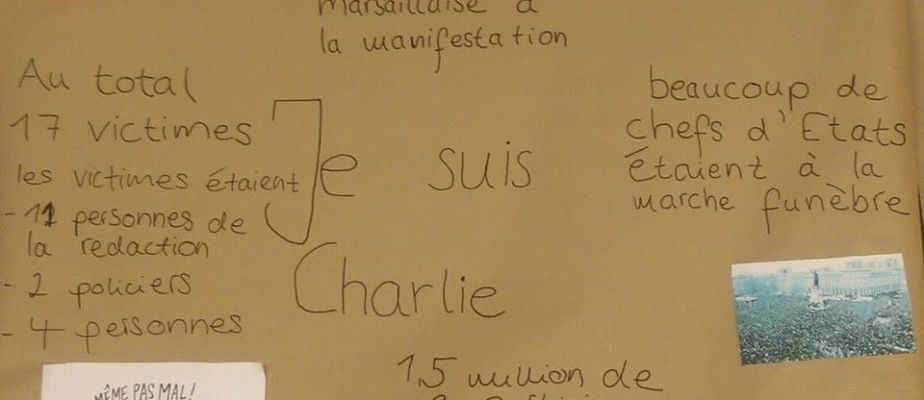 Marsaillaise à
la manifestation
Au total
17 victimes
les victimes étaient
- 11 personnes de
la redaction
- 2 policiers
- 4 personnes
Je suis
Charlie
beaucoup de
chefs d'Etats
étaient à la
marche funèbre
MÊME PAS MAL!
1,5 million de